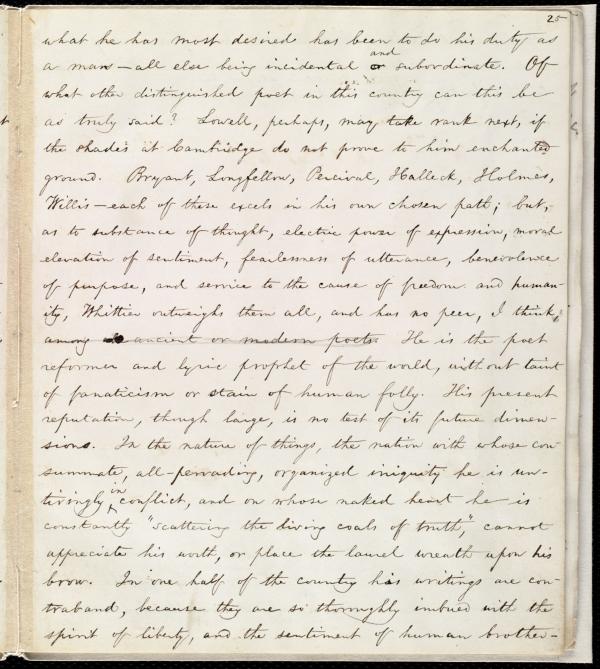 25
what he has most desired has been to do his duty as
and
a man — all else being incidental or subordinate. Of
what other distinguished poet in this country can this be
as truly said? Lowell, perhaps, may take rank next, if
the shades at Cambridge do not prove to him enchanted
ground. Bryant, Longfellow, Percival, Halleck, Holmes,
Willis — each of these excels in his own chosen path; but,
as to substance of thought, electric power of expression, moral
elevation of sentiment, fearlessness of utterance, benevolence
of purpose, and service to the cause of freedom and human-
ity, Whittier outweighs them all, and has no peer, I think,
among ancient or modern poets. He is the poet
reformer and lyric prophet of the world, without taint
of fanaticism or stain of human folly. His present
reputation, though large, is no test of its future dimen-
sions. In the nature of things, the nation with whose con-
summate, all-pervading, organized iniquity he is un-
in
tiringly conflict, and on whose naked heart he is
constantly "scattering the living coals of truth," cannot
appreciate his worth, or place the laurel wreath upon his
brow. In one half of the country his writings are con-
traband, because they are so thoroughly imbued with the
spirit of liberty, and the sentiment of human brother-